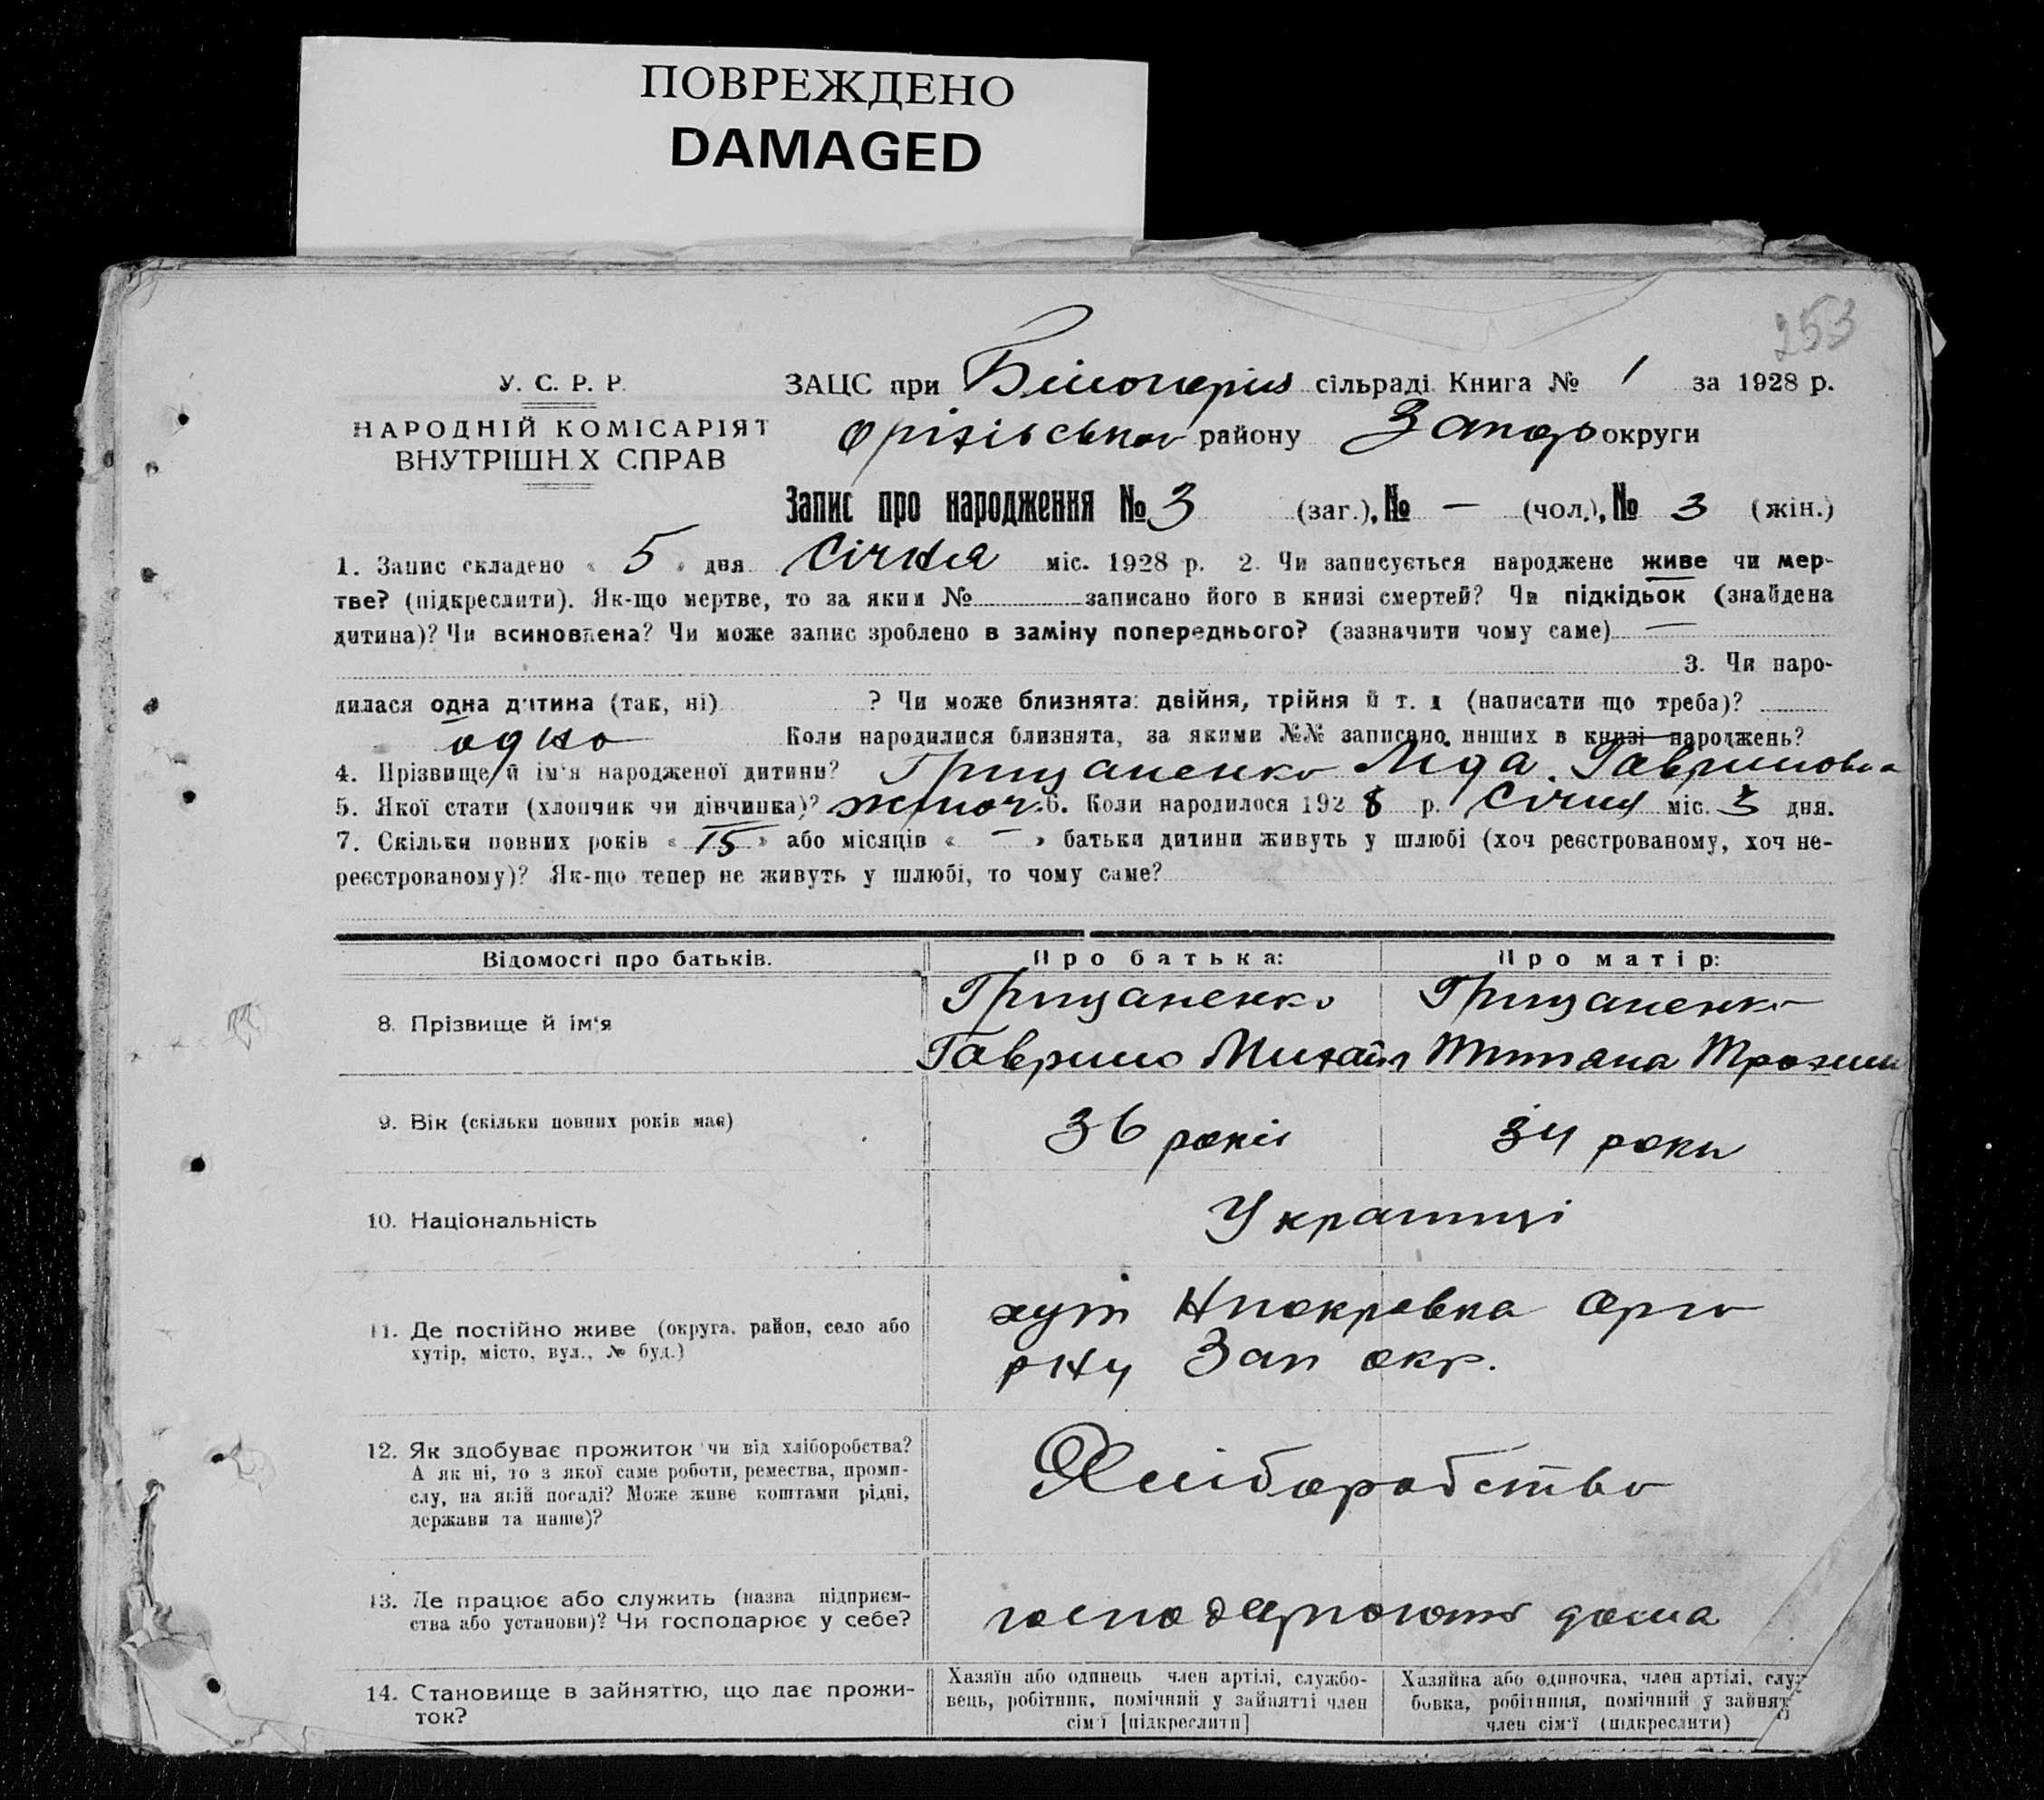 ПОВРЕЖДЕНО
DAMAGED
253
У. С. Р. Р.
НАРОДНІЙ КОМІСАРІЯТ
ВНУТРІШН Х СПРАВ
ЗАЦС при сільраді Книга № 1 за 1928 р.
району округи
Запис про народження № 3 (заг.), № — (чол.), № 3 (жін.)
1. Запис складено « 5 » дня Січня міс. 1928 р. 2. Чи записується народжене живе чи мер-
тве? (підкреслити). Як-що мертве, то за яким № записано його в книзі смертей? Чи підкідьок (знайдена
дитина)? Чи всиновлена? Чи може запис зроблено в заміну попереднього? (зазначити чому саме) —
3. Чи наро-
дилася одна дитина (так, ні) ? Чи може близнята: двійня, трійня й т. д (написати що треба)?
одно Коли народилися близнята, за якими №№ записано инших в книзі народжень?
4. Прізвище й ім'я народженої дитини? Грицаненко Ліда Гавриловна
5. Якої стати (хлопчик чи дівчинка)? жіноч. 6. Коли народилося 1928 р. Січня міс. 3 дня.
7. Скільки повних років « 15 » або місяців « — » батьки дитини живуть у шлюбі (хоч реєстрованому, хоч не-
реєстрованому)? Як-що тепер не живуть у шлюбі, то чому саме?
Відомості про батьків. Про батька: Про матір:
8. Прізвище й ім'я
Грицаненко Грицаненко
Гаврило Михайл Тітяна Трохим
9. Вік (скільки повних років має) 36 років 34 роки
10. Національність Українці
11. Де постійно живе (округа, район, село або
хутір, місто, вул., № буд.)
хут Нпокровка Оріх
рну Зап окр.
12. Як здобуває прожиток чи від хліборобства?
А як ні, то з якої саме роботи, ремества, проми-
слу, на якій посаді? Може живе коштами рідні,
держави та инше)?
Хліборобство
13. Де працює або служить (назва підприєм-
ства або установи)? Чи господарює у себе?
господарюють дома
14. Становище в зайняттю, що дає прожи-
ток?
Хазяїн або одинець член артілі, службо-
вець, робітник, помічний у зайнятті член
сім'ї [підкреслити]
Хазяйка або одиночка, член артілі, служ
бовка, робітниця, помічний у зайнят
член сім'ї (підкреслити)